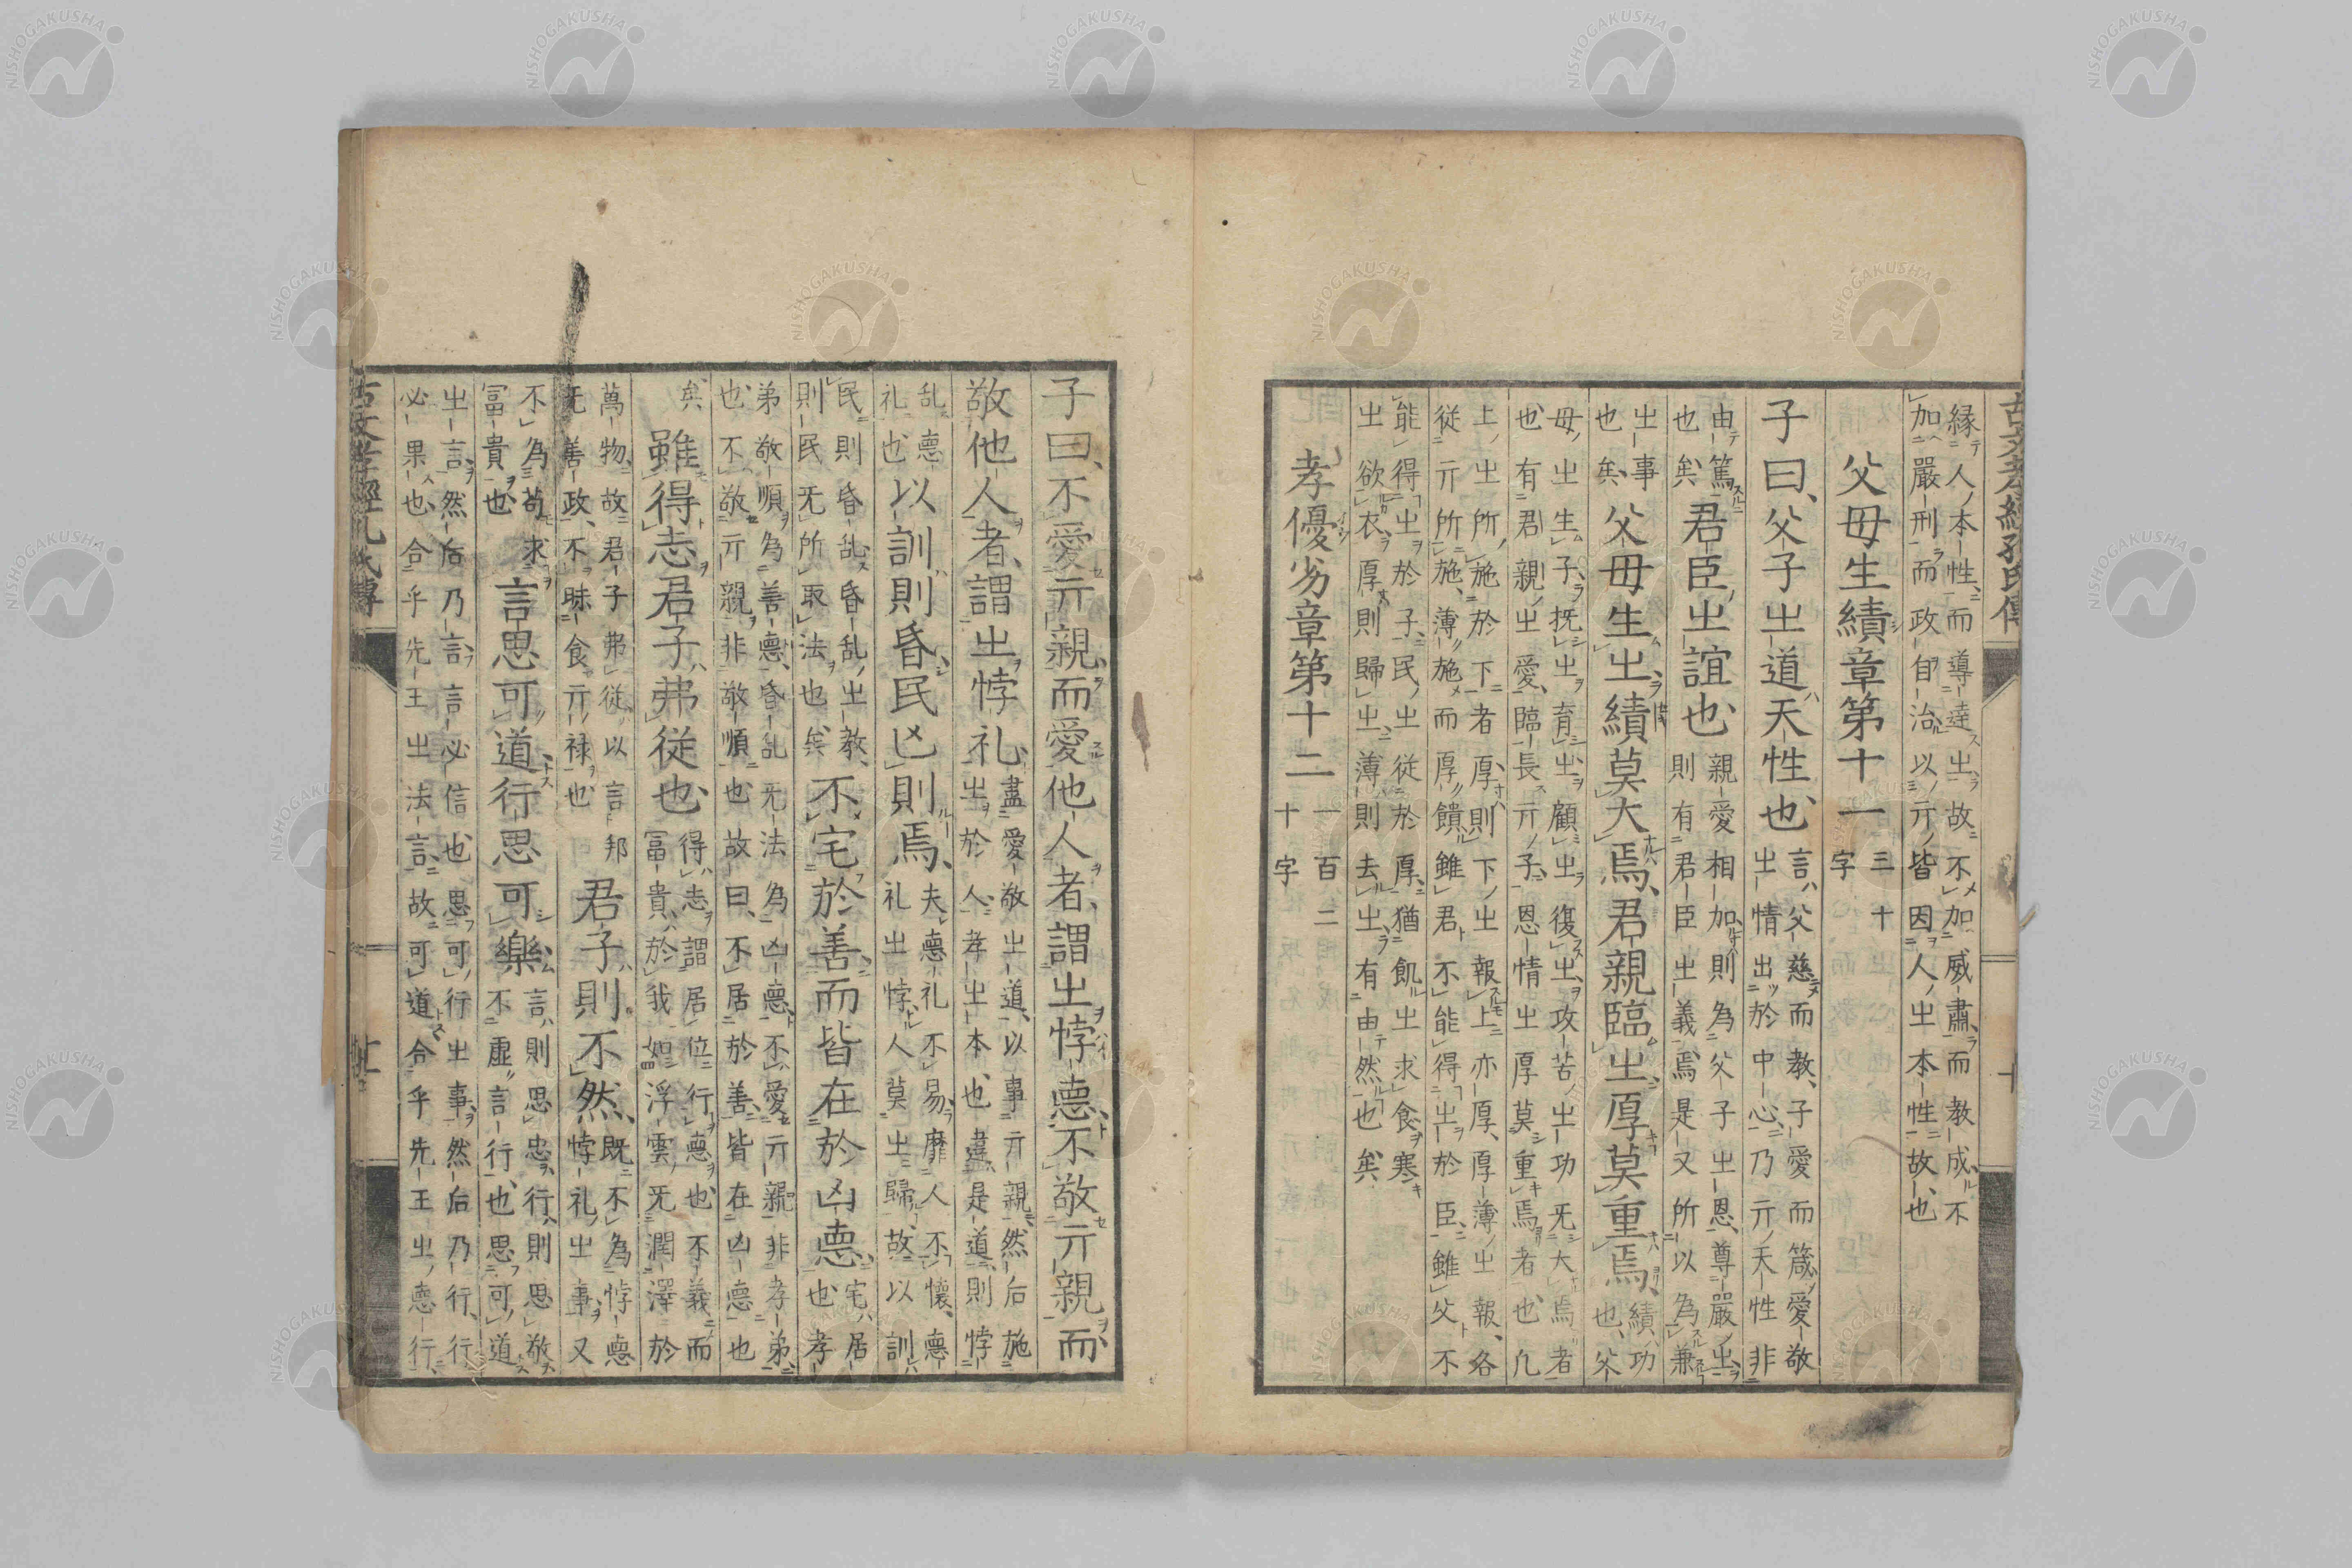 古文孝經孔氏傳
縁人本性而導達㞢故不加威肅而教成不
加嚴刑而政自治以亓皆因人㞢本性故也
父母生績章第十一
三十
字
子曰父子㞢道天性也
言父慈而教子愛而箴愛敬
㞢情出於中心乃亓天性非
由篤
也矣
君臣㞢誼也
親愛相加則為父子㞢恩尊嚴㞢
則有君臣㞢義焉是又所以為兼
㞢事
也矣
父母生㞢績莫大焉君親臨㞢厚莫重焉
績功
也父
母㞢生子抚㞢育㞢顧㞢復㞢攻苦㞢功旡大焉者
也有君親㞢愛臨長亓子恩情㞢厚莫重焉者也凢
上㞢所施於下者厚則下㞢報上亦厚厚薄㞢報各
從亓所施薄施而厚饋雖君不能得㞢於臣雖父不
能得㞢於子民㞢從於厚猶飢㞢求食寒
㞢欲衣厚則歸㞢薄則去㞢有由然也矣
孝優劣章第十二
一百二
十字
子曰不愛亓親而愛他人者謂㞢悖悳不敬亓親而
敬他人者謂㞢悖礼
盡愛敬㞢道以事亓親然后施
㞢於人孝㞢本也違是道則悖
乱悳
礼也
以訓則昏民亡則焉
夫悳礼不易靡人不懷悳
礼㞢悖人莫㞢歸故以訓
民則昏乱昏乱㞢教
則民旡所取法也矣
不宅於善而皆在於凶悳
宅居
也孝
弟敬順為善悳昏乱旡法為凶悳不愛亓親非孝弟
也不敬亓親非敬順也故曰不居於善皆在凶悳也
矣
雖得志君子弗從也
得志謂居位行悳也不義而
冨貴於我如浮雲旡潤澤於
萬物故君子弗從以言邦
旡善政不昧食亓禄也
君子則不然
既不為悖悳
悖礼㞢事又
不為苟求
冨貴也
言思可道行思可樂
言則思忠行則思敬
不虛言行也思可道
㞢言然后乃言言必信也思可行㞢事然后乃行行
必果也合乎先王㞢法言故可道合乎先王㞢悳行
古文孝經孔氏傳
NISHOGAKUSHA